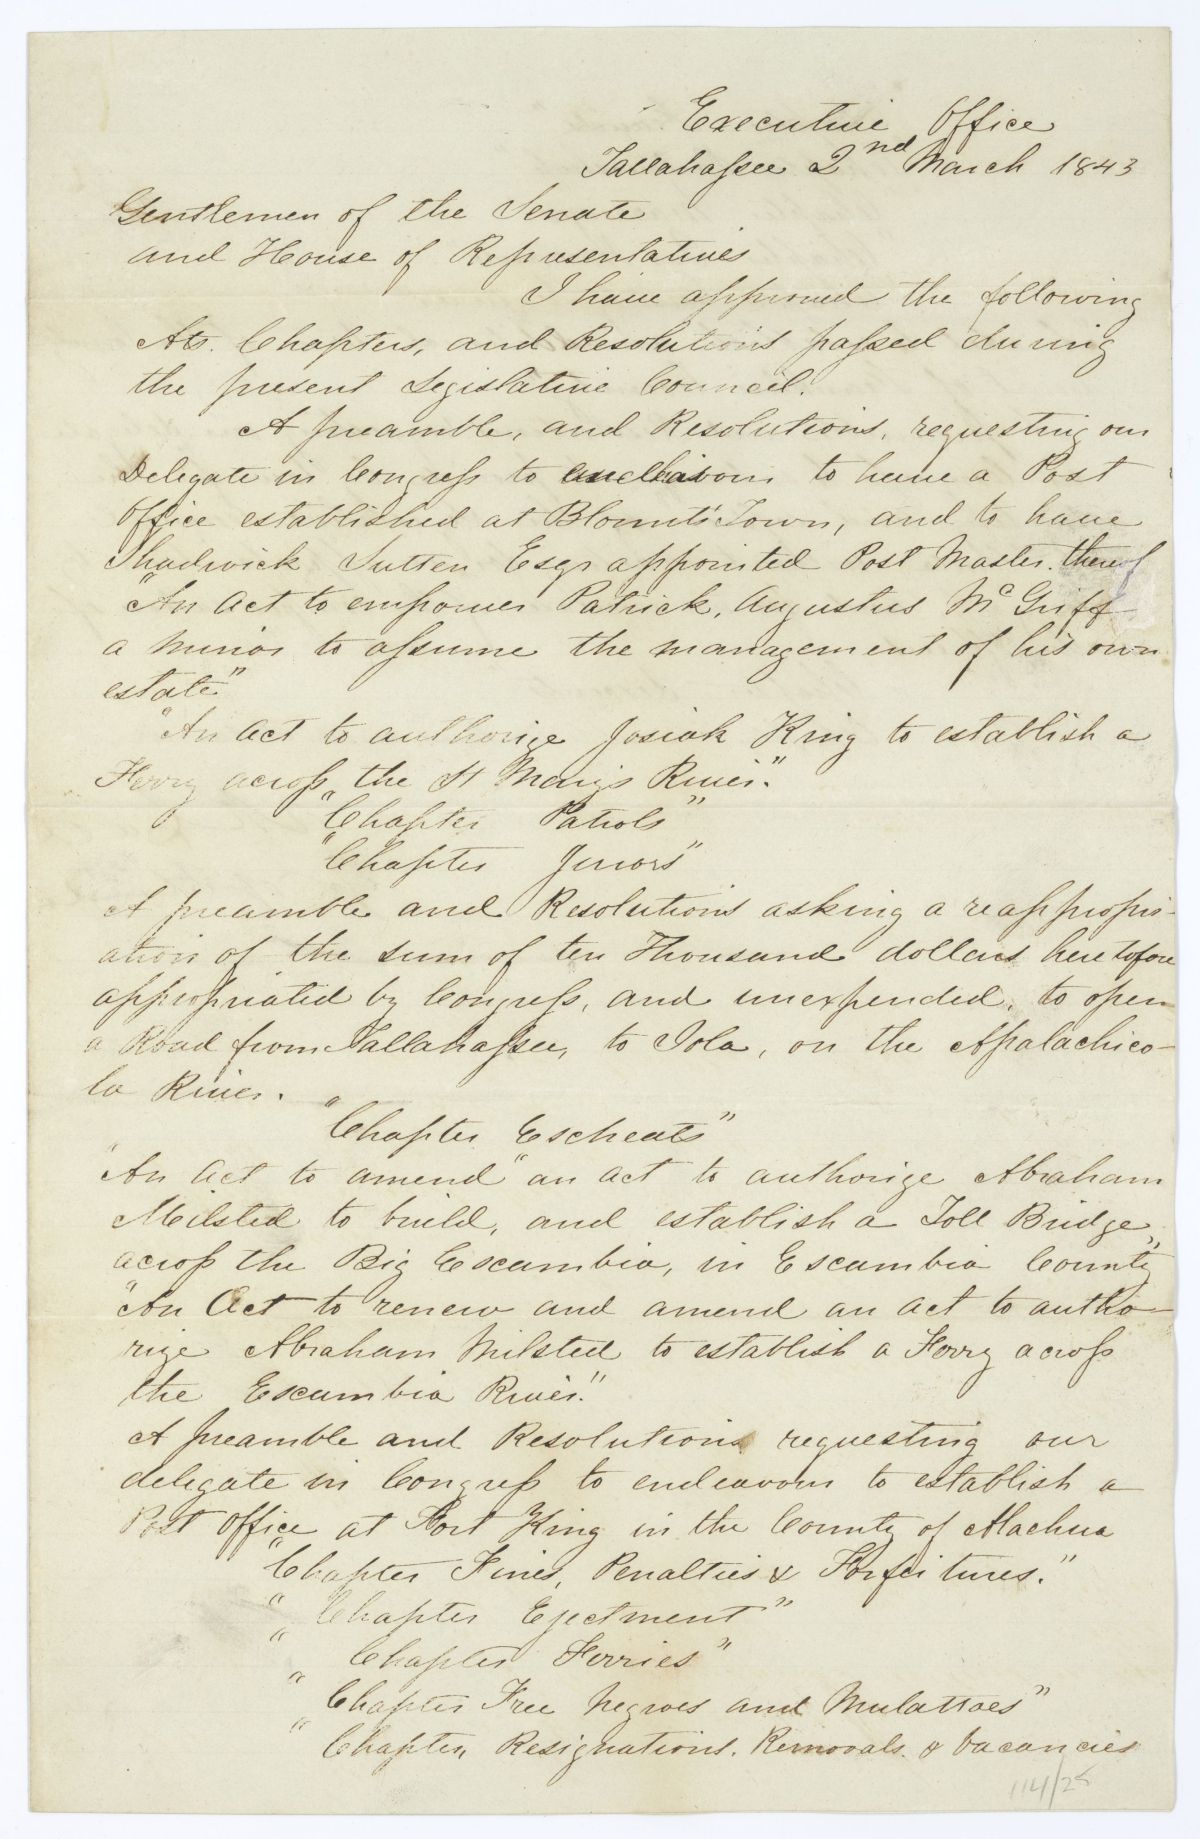 Executive Office
Tallahassee 2nd March 1843
Gentlemen of the Senate
and House of Representatives
I have approved the following
Ats. Chapters, and Resolutions passed during
the present Legislative Council.
A preamble, and Resolutions, requesting our
Delegate in Congress to endeavour to have a Post
Office established at Blounts Town, and to have
Shadwick Sutten Esqr appointed Post Master. thereof
"An Act to empower Patrick, Augustus Mc Griff
a minor to assume the management of his own
estate"
"An Act to authorize Josiah King to establish a
Ferry across the St Marys River."
"Chapter Patrols"
"Chapter Jurors"
A preamble and Resolutions asking a reappropri-
ation of the sum of ten Thousand dollars heretofore
appropriated by Congress, and unexpended, to open
a Road from Tallahassee, to Iola, on the Apalachico-
la River.
"Chapter Escheats"
"An Act to amend "an act to authorize Abraham
Milsted to build, and establish a Toll Bridge,
across the Big Escambia, in Escambia County"
"An Act to renew and amend an act to autho-
rize Abraham Milsted to establish a Ferry across
the Escambia River."
A preamble and Resolutions requesting our
delegate in Congress to endeavour to establish a
Post Office at Fort King in the County of Alachua
"Chapter Fines, Penalties & Forfeitures."
"Chapter Ejectment"
"Chapter Ferries"
"Chapter Free Negroes and Mulattoes"
"Chapter, Resignations. Removals. & Vacancies
114/25